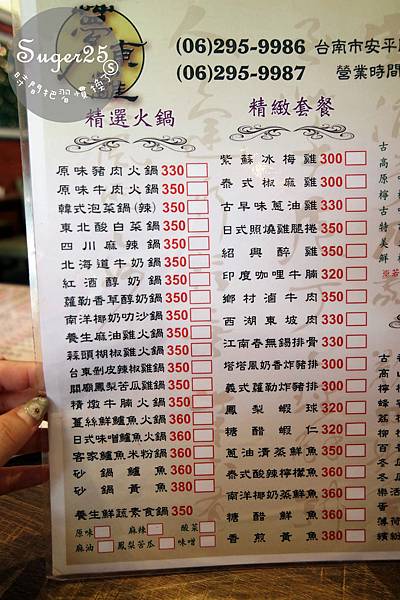 Suger25
時間把習慣換了
(06)295-9986 台南市安平
(06)295-9987 營業時間
精選火鍋
原味豬肉火鍋 330
原味牛肉火鍋 350
韓式泡菜鍋(辣) 350
東北酸白菜鍋 350
四川麻辣鍋 350
北海道牛奶鍋 350
紅酒醇奶鍋 350
蘿勒香草醇奶鍋 350
南洋椰奶叻沙鍋 350
養生麻油雞火鍋 350
蒜頭椒雞火鍋 350
台東剝皮辣椒雞鍋 350
關廟鳳梨苦瓜雞鍋 350
精燉牛腩火鍋 350
薑絲鮮鱸魚火鍋 360
日式味噌鱸魚火鍋 360
客家鱸魚米粉鍋 360
砂鍋鱸魚 360
砂鍋黃魚 380
養生鮮蔬素食鍋 350
原味 麻辣 酸菜
麻油 鳳梨苦瓜 味噌
精緻套餐
紫蘇冰梅雞 300
泰式椒麻雞 300
古早味蔥油雞 350
日式照燒雞腿捲 350
紹興醉雞 350
印度咖哩牛腩 320
鄉村滷牛肉 350
西湖東坡肉 330
江南春無錫排骨 330
塔塔風奶香炸豬排 330
義式蘿勒炸豬排 300
鳳梨蝦球 320
糖醋蝦仁 320
蔥油清蒸鮮魚 350
泰式酸辣檸檬魚 350
南洋椰奶蒸鮮魚 360
糖醋鮮魚 360
香煎黃魚 380